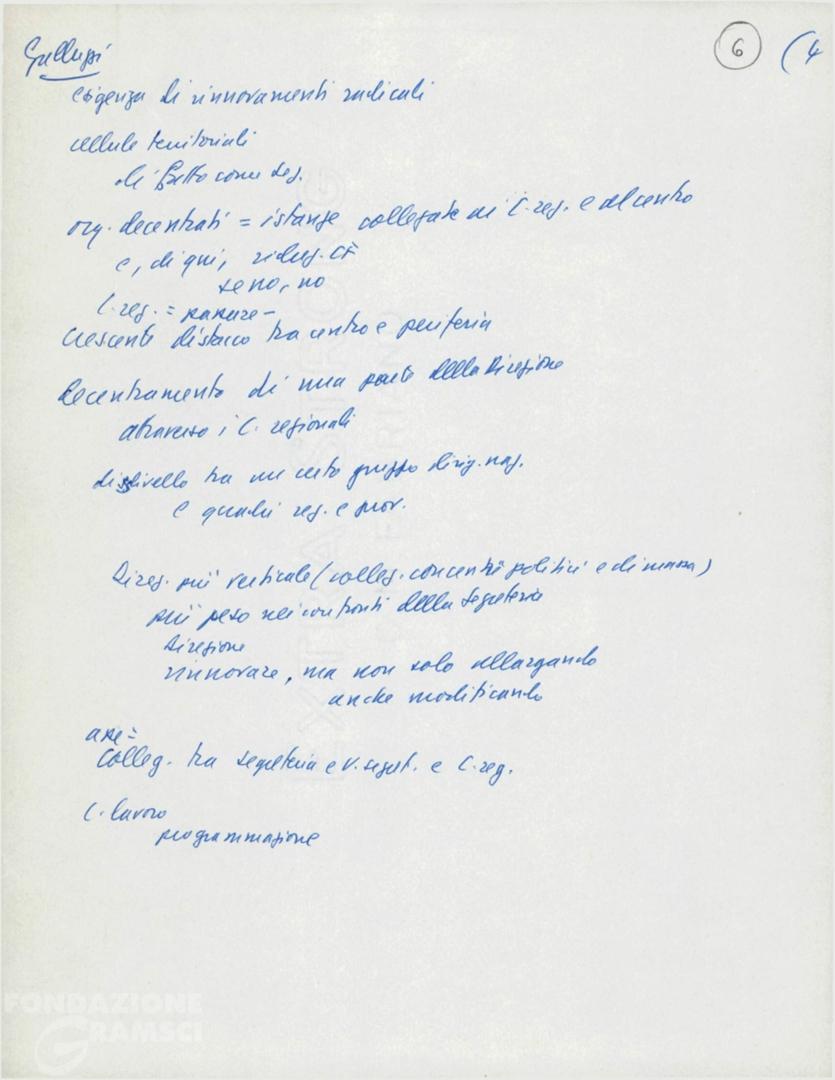 Galluzzi
6 (4
esigenza di rinnovamenti radicali
cellule territoriali
di fatto come sez.
org. decentrati = istanze collegate ai C. reg. e al centro
e, di qui, riduz. CF
se no, no
C. reg. =
Crescente distacco tra centro e periferia
Decentramento di una parte della Direzione
attraverso i C. regionali
dislivello tra un certo gruppo dirig. naz.
e quadri reg. e prov.
Direz. più verticale (colleg. con centri politici e di massa)
più peso nei confronti della Segreteria
Direzione
rinnovare, ma non solo allargando
anche modificando
asse =
Colleg. tra segreteria e V. segret. e C. reg.
C. lavoro
programmazione
EXTRA STRONG
FONDAZIONE
GRAMSCI